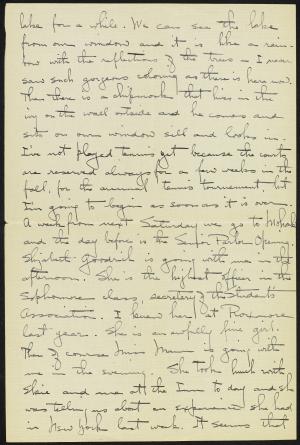 lake for a while. We can see the lake
from our window and it is like a rain-
bow with the reflections of the trees — I never
saw such gorgeous coloring as there is here now.
Then there is a chipmonk that lives in the
ivy on the wall outside and he comes and
sits on our window sill and looks in.
I've not played tennis yet because the courts
are reserved always for a few weeks in the
fall, for the annual tennis tournement but
I'm going to begin as soon as it is over.
A week from next Saturday we go to Mohonk
and the day before is the Senior Parlor Opening.
Elizabeth Goodrich is going with me in the
afternoon. She is the highest officer in the
Sophomore class, secretary of the Students
Association. I knew her at Rosemore
last year. She is an awfully fine girl.
Then of course Miss is going with
me in the evening. She took lunch with
Elsie and me at the Inn to day and she
was telling us about an experience she had
in New York last week. It seems that